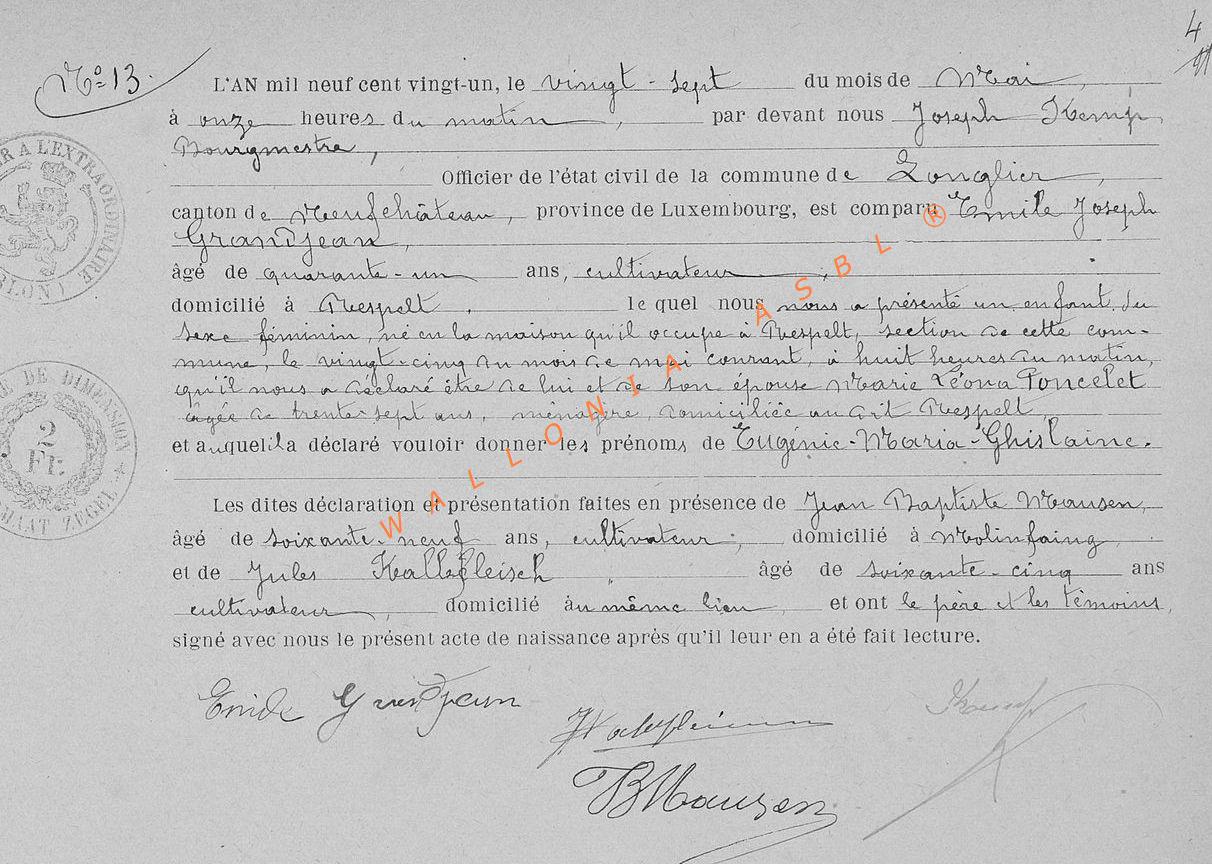 4
Nº 13.
L'AN mil neuf cent vingt-un, le vingt-sept du mois de Mai,
à onze heures du matin, par devant nous Joseph Kemp,
Bourgmestre,
Officier de l'état civil de la commune de Longlier,
canton de Neufchâteau, province de Luxembourg, est comparu Emile Joseph
Grandjean,
âgé de quarante-un ans, cultivateur,
domicilié à Respelt, lequel nous nous a présenté un enfant du
sexe féminin, né en la maison qu'il occupe à Respelt, section de cette com-
mune, le vingt-cinq du mois de mai courant, à huit heures du matin,
qu'il nous a déclaré être de lui et de son épouse Marie Léona Poncelet
âgée de trente-sept ans, ménagère, domiciliée au dit Respelt,
et auquel il a déclaré vouloir donner les prénoms de Eugénie-Maria-Ghislaine.
Les dites déclaration et présentation faites en présence de Jean Baptiste Mausen,
âgé de soixante-neuf ans, cultivateur, domicilié à Molinfaing
et de Jules Kalbfleisch âgé de soixante-cinq ans
cultivateur, domicilié au même lieu, et ont le père et les témoins,
signé avec nous le présent acte de naissance après qu'il leur en a été fait lecture.
Emile Grandjean
JKalbfleisch
JBMausen
JKemp
R A L'EXTRAORDINAIRE
DE DIMENSION
2
FR.
MAAT ZEGEL
WALLONIA ASBL ®